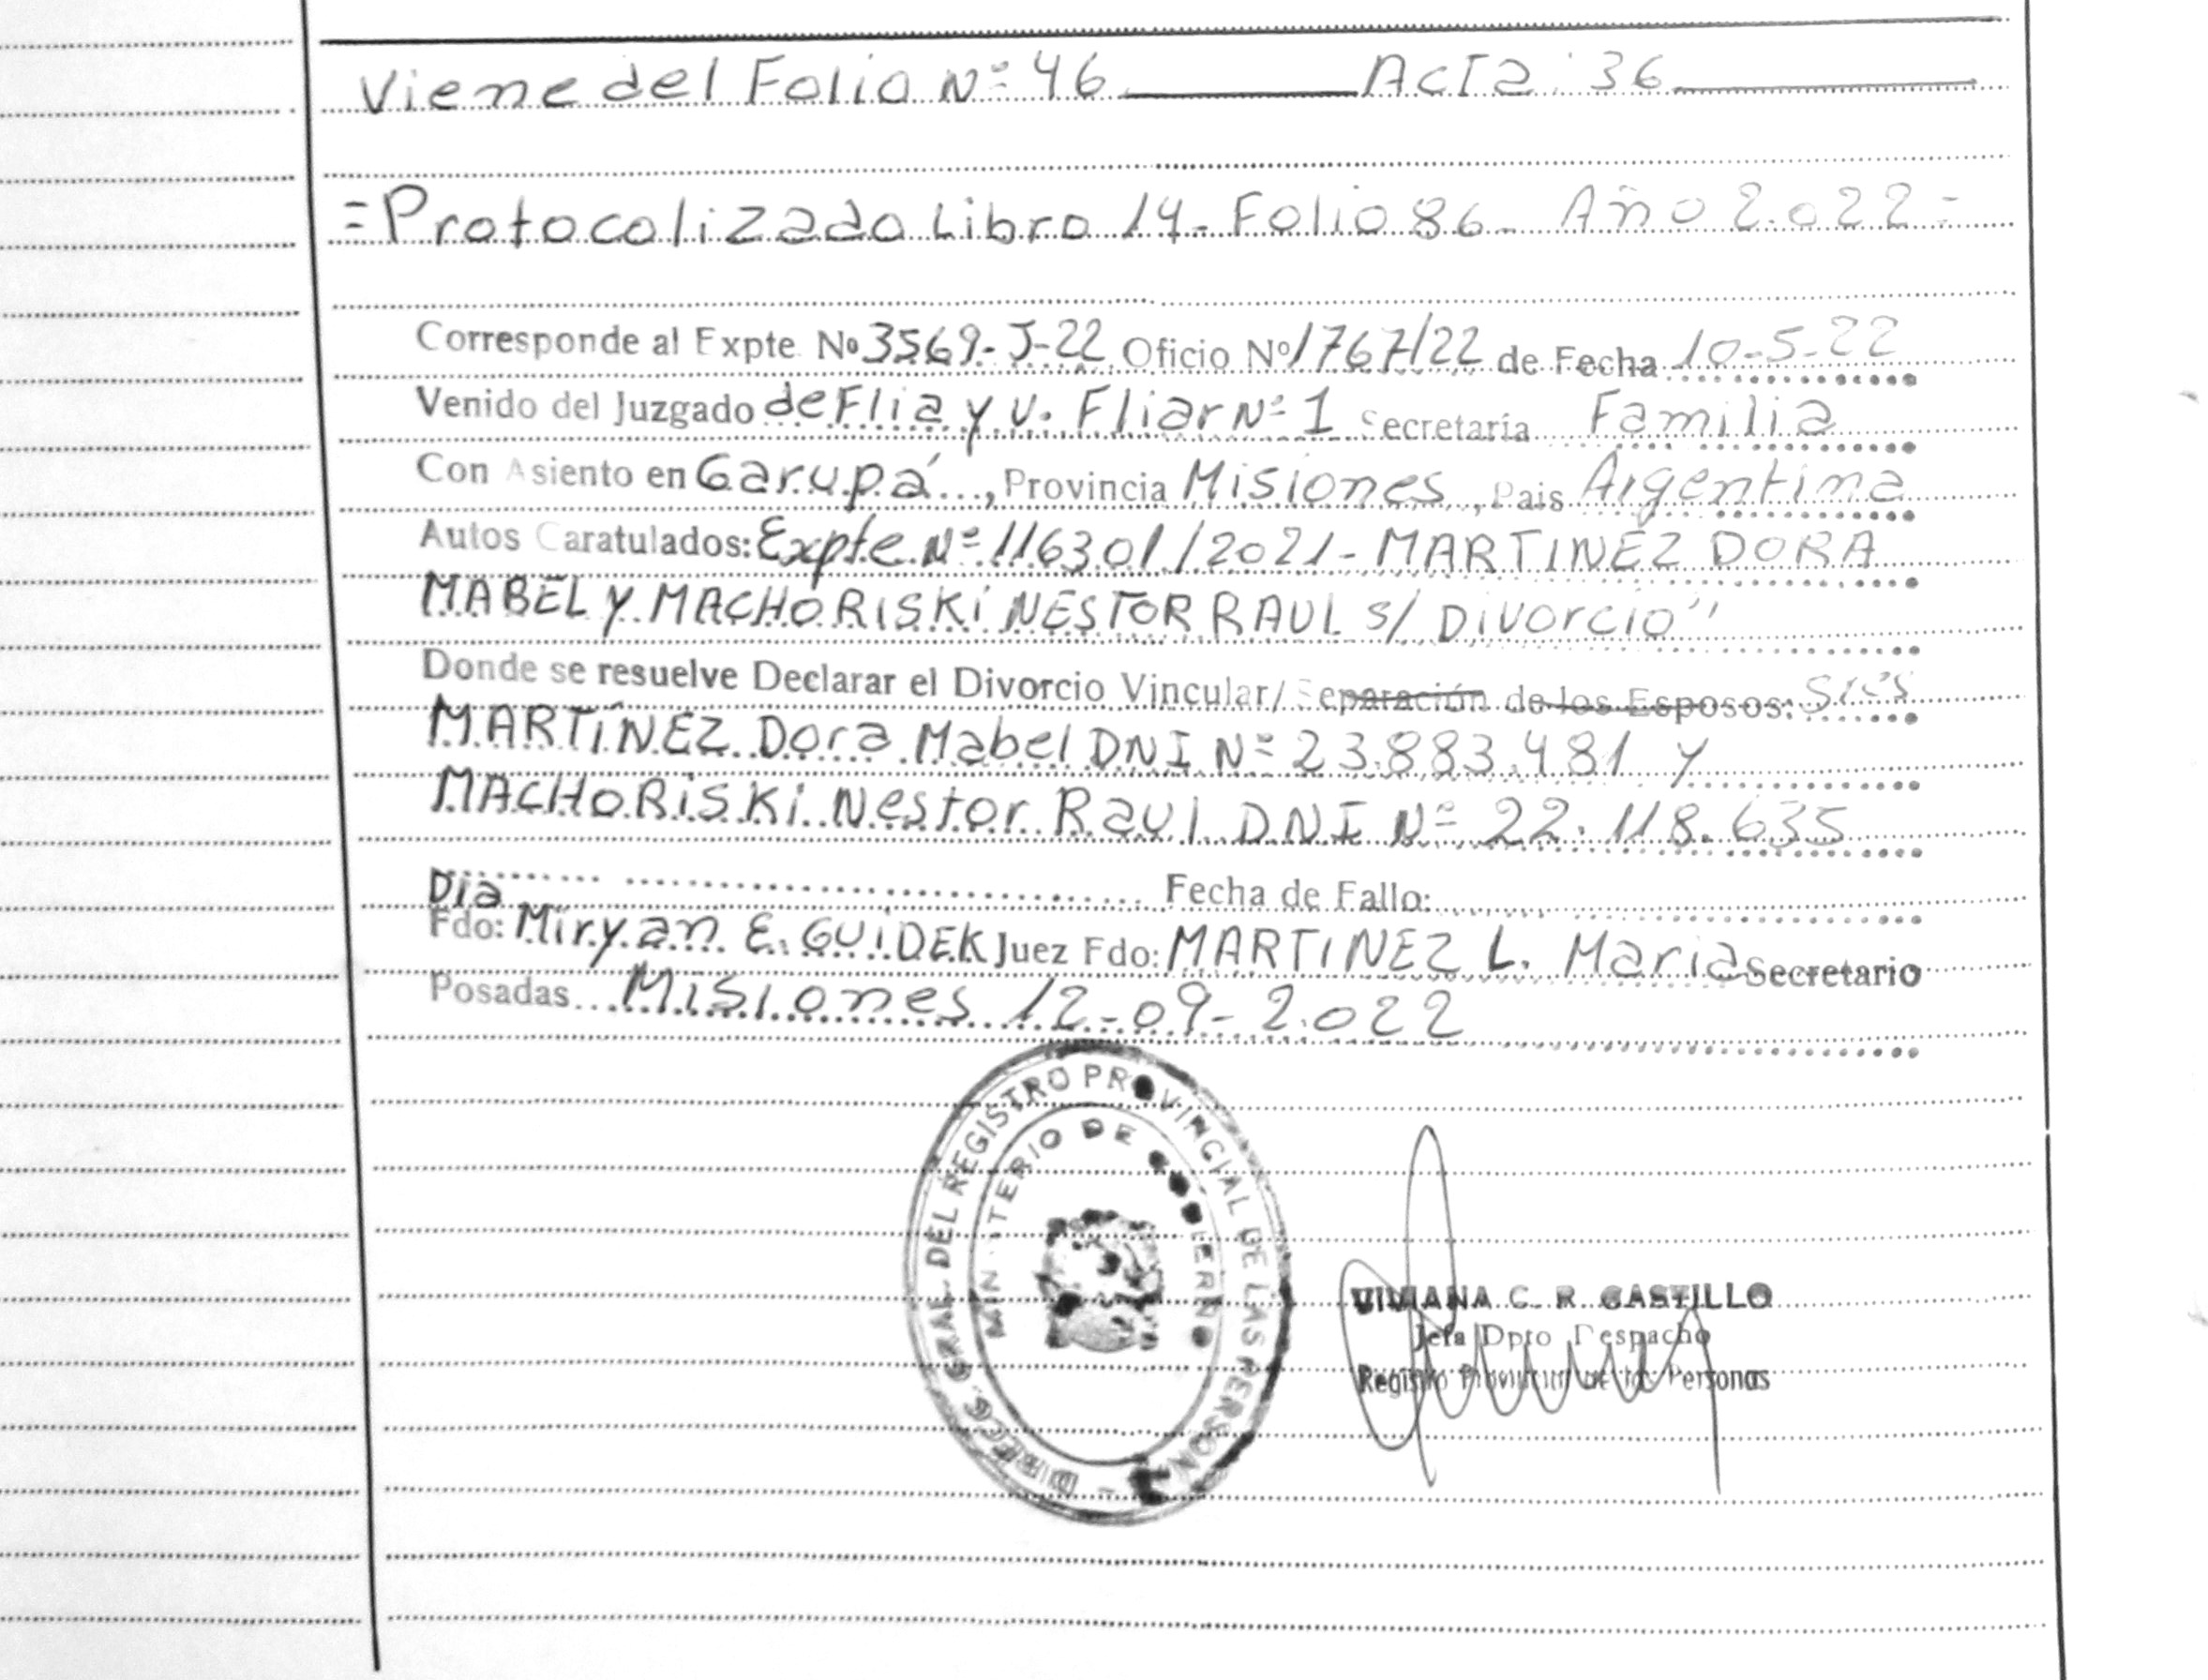 Viene del Folio Nº 46 Acta: 36
=Protocolizado Libro 14- Folio 86- Año 2.022=
Corresponde al Expte. Nº 3569-J-22 Oficio Nº 1767/22 de Fecha 10-5-22
Venido del Juzgado de Flia y V. Fliar Nº 1 Secretaría Familia
Con Asiento en Garupá, Provincia Misiones, Pais Argentina
Autos Caratulados: Expte Nº 116301/2021- MARTINEZ DORA
MABEL y MACHORISKI NESTOR RAUL s/ Divorcio"
Donde se resuelve Declarar el Divorcio Vincular/ Separación de los Esposos: Sres
MARTÍNEZ Dora Mabel DNI Nº 23.883.481 y
MACHORISKI Nestor Raul DNI Nº 22.118.635
Día Fecha de Fallo:
Fdo: Miryan E. GUIDEK Juez Fdo: MARTINEZ L. Maria Secretario
Posadas Misiones 12-09-2.022
DIRECC. GRAL. DEL REGISTRO PROVINCIAL DE LAS PERSONAS
MINISTERIO DE GOBIERNO
VIVIANA C. R. CASTILLO
Jefa Dpto Despacho
Registro Provincial de las Personas